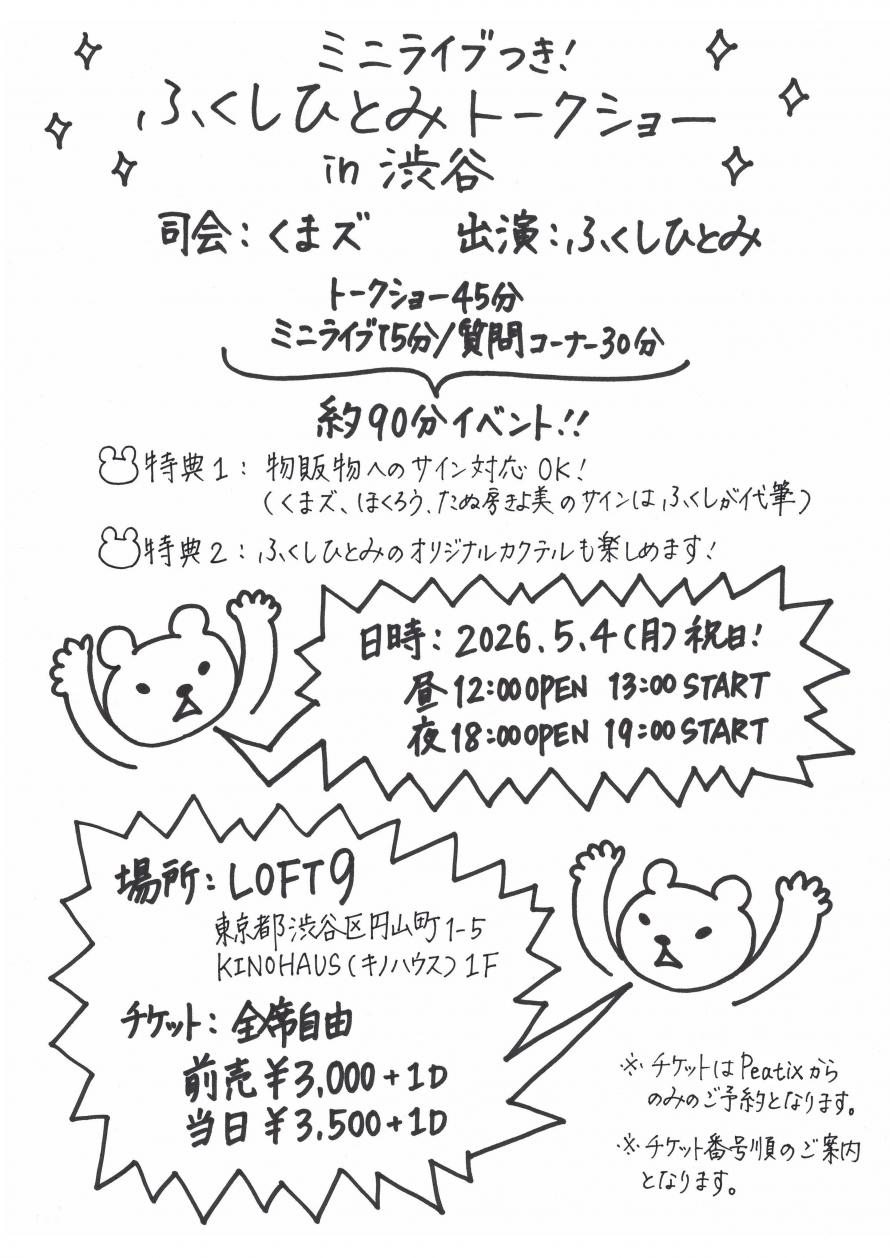 ミニライブつき!
ふくしひとみトークショー
in 渋谷
司会:くまズ 出演:ふくしひとみ
トークショー45分
ミニライブ15分/質問コーナー30分
約90分イベント!!
特典1:物販物へのサイン対応OK!
(くまズ、ほくろう、たぬ房きよ美のサインはふくしが代筆)
特典2:ふくしひとみのオリジナルカクテルも楽しめます!
日時:2026.5.4(月)祝日!
昼12:00OPEN 13:00START
夜18:00OPEN 19:00START
場所:LOFT9
東京都渋谷区円山町1-5
KINOHAUS(キノハウス)1F
チケット:全席自由
前売¥3,000+1D
当日¥3,500+1D
※チケットはPeatixから
のみのご予約となります。
※チケット番号順のご案内
となります。